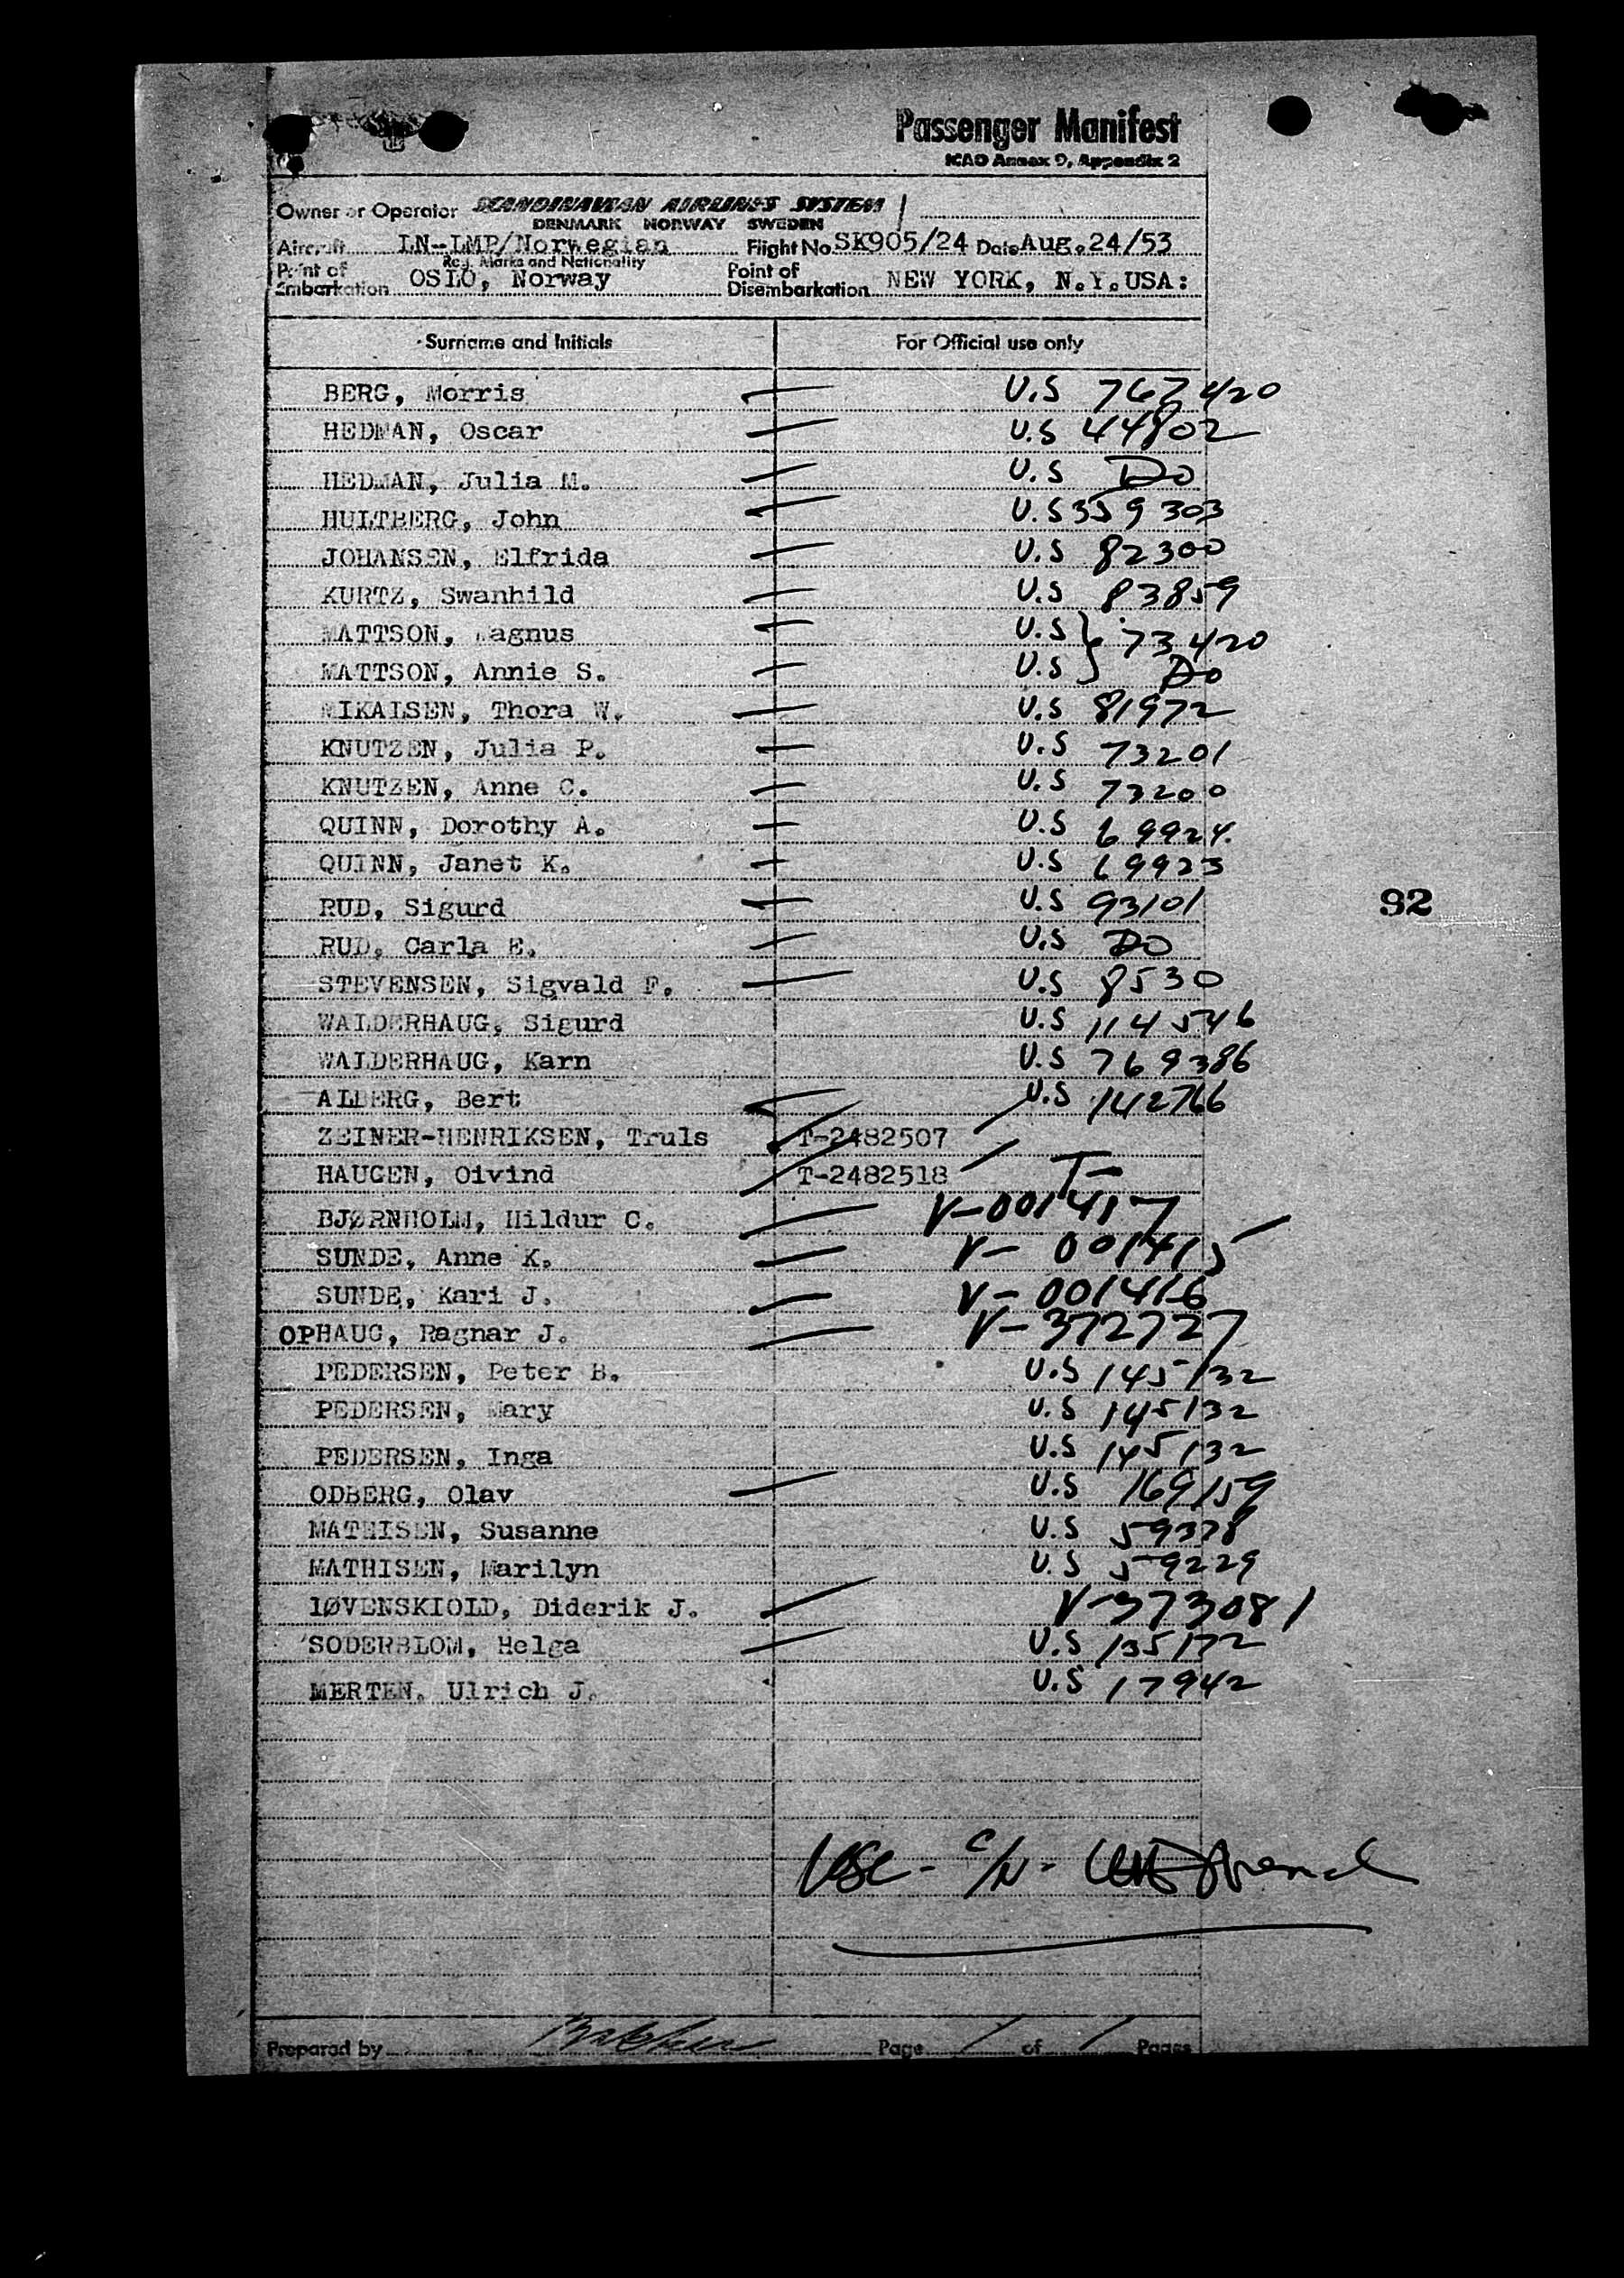 Passenger Manifest
ICAO Annex 9, Appendix 2
Owner or Operator SCANDINAVIAN AIRLINES SYSTEM
DENMARK NORWAY SWEDEN
Aircraft LN-LMP/Norwegian Flight No. SK905/24 Date Aug. 24/53
Reg. Marks and Nationality
Point of Embarkation OSLO, Norway Point of Disembarkation NEW YORK, N.Y. USA:
Surname and Initials For Official use only
BERG, Morris U.S 767420
HEDMAN, Oscar U.S 44802
HEDMAN, Julia M. U.S Do
HULTBERG, John U.S 359303
JOHANSEN, Elfrida U.S 82300
KURTZ, Swanhild U.S 83859
MATTSON, Magnus U.S } 73420
MATTSON, Annie S. U.S } Do
MIKALSEN, Thora W. U.S 81972
KNUTZEN, Julia P. U.S 73201
KNUTZEN, Anne C. U.S 73200
QUINN, Dorothy A. U.S 69924
QUINN, Janet K. U.S 69923
RUD, Sigurd U.S 93101
92
RUD, Carla E. U.S Do
STEVENSEN, Sigvald F. U.S 8530
WALDERHAUG, Sigurd U.S 114546
WALDERHAUG, Karn U.S 769386
ALBERG, Bert U.S 142766
ZEINER-HENRIKSEN, Truls T-2482507
HAUGEN, Oivind T-2482518 T-
BJØRNHOLM, Hildur C. V-001417
SUNDE, Anne K. V-001415
SUNDE, Kari J. V-001416
OPHAUG, Ragnar J. V-372727
PEDERSEN, Peter B. U.S 145132
PEDERSEN, Mary U.S 145132
PEDERSEN, Inga U.S 145132
ODBERG, Olav U.S 169159
MATHISEN, Susanne U.S 59378
MATHISEN, Marilyn U.S 59229
LØVENSKIOLD, Diderik J. V-373081
SODERBLOM, Helga U.S 135172
MERTEN, Ulrich J. U.S 17942
USC - C/N -
Prepared by Page 1 of 1 Pages